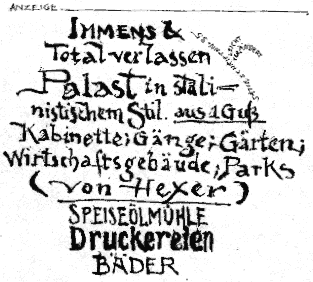 ANZEIGE
IMMENS &
Total verlassen
Palast in stali-
nistischem Stil. aus 1 Guß
Kabinette; Gänge; Gärten;
Wirtschaftsgebäude; Parks
(von Hexer)
SPEISEÖLMÜHLE
Druckereien
BÄDER